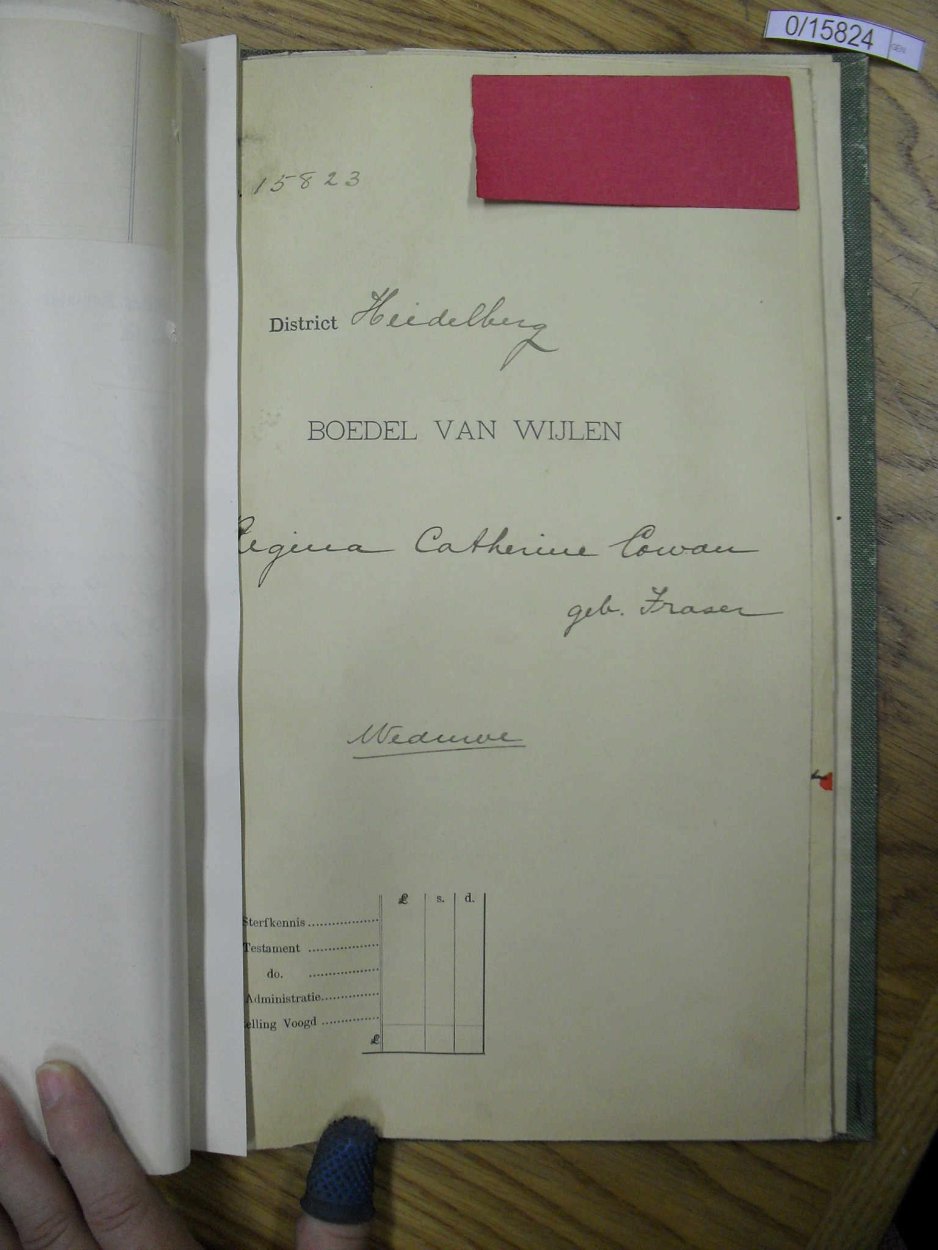 0/15824
15823
District Heidelberg
BOEDEL VAN WIJLEN
Regina Catherine Cowan
geb. Fraser
Weduwe
£ s. d.
Sterfkennis
Testament
do.
Administratie
elling Voogd
£